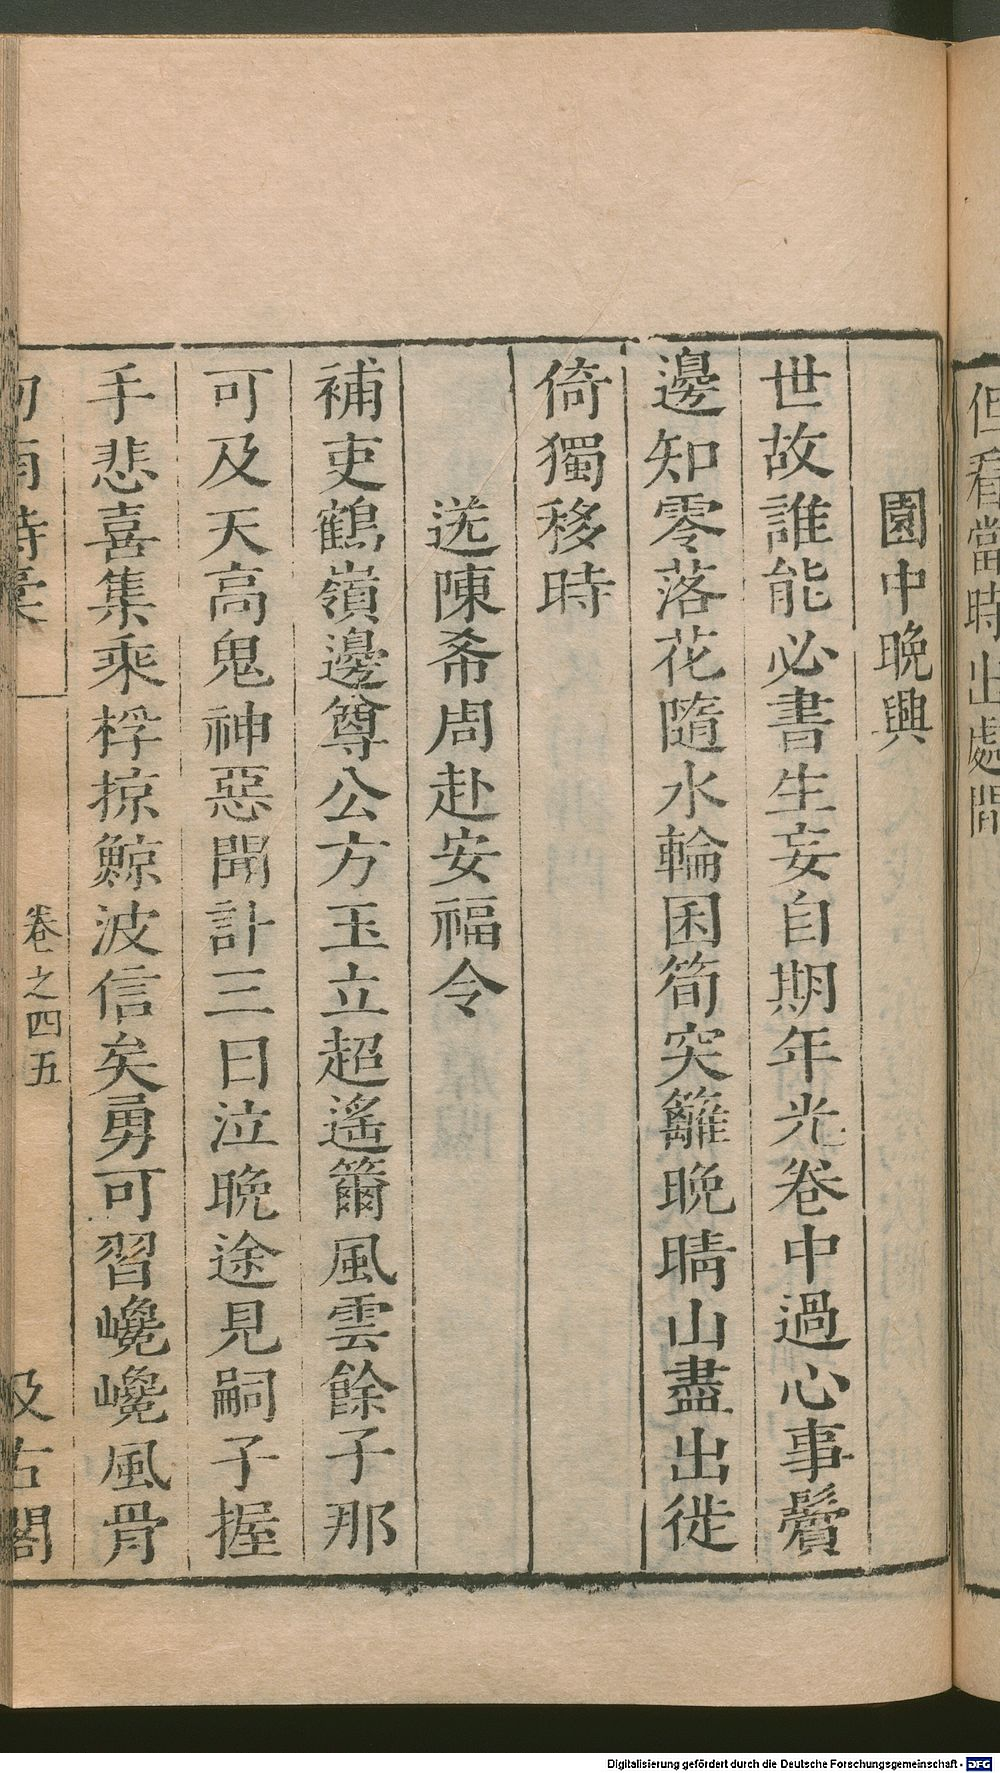 但看當時出處間
園中晚興
世故誰能必書生妄自期年光卷中過心事鬢
邊知零落花隨水輪囷筍突籬晚晴山盡出徙
倚獨移時
送陳希周赴安福令
補吏鶴嶺邊尊公方玉立超遙籋風雲餘子那
可及天高鬼神惡聞計三日泣晚途見嗣子握
手悲喜集乘桴掠鯨波信矣勇可習巉巉風骨
卷之四五
汲古閣
Digitalisierung gefördert durch die Deutsche Forschungsgemeinschaft - DFG